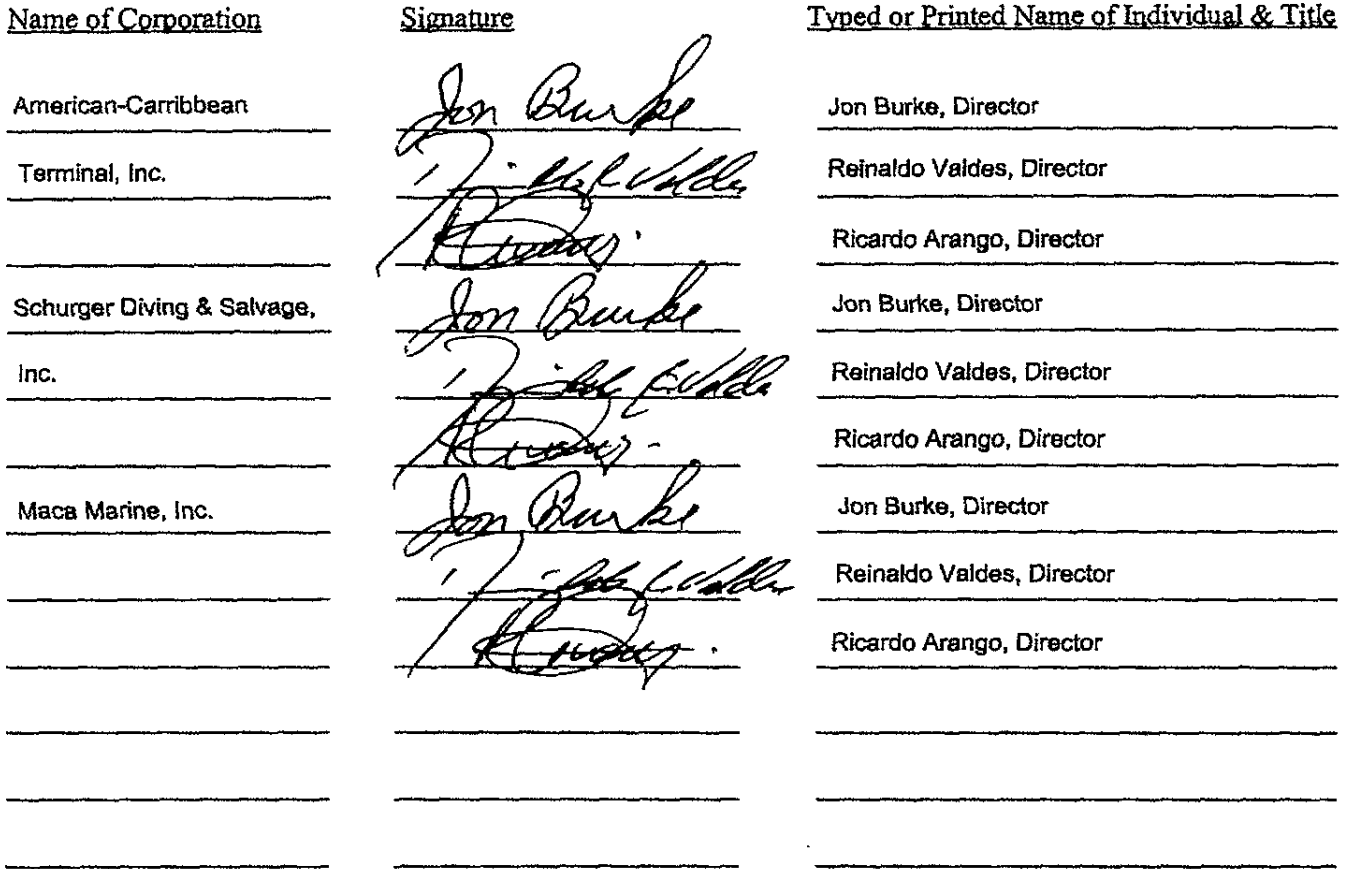 Name of Corporation Signature Typed or Printed Name of Individual & Title
American-Carribbean Jon Burke Jon Burke, Director
Terminal, Inc. Reinaldo Valdes, Director
Ricardo Arango, Director
Schurger Diving & Salvage, Jon Burke Jon Burke, Director
Inc. Reinaldo Valdes, Director
Ricardo Arango, Director
Maca Marine, Inc. Jon Burke Jon Burke, Director
Reinaldo Valdes, Director
Ricardo Arango, Director